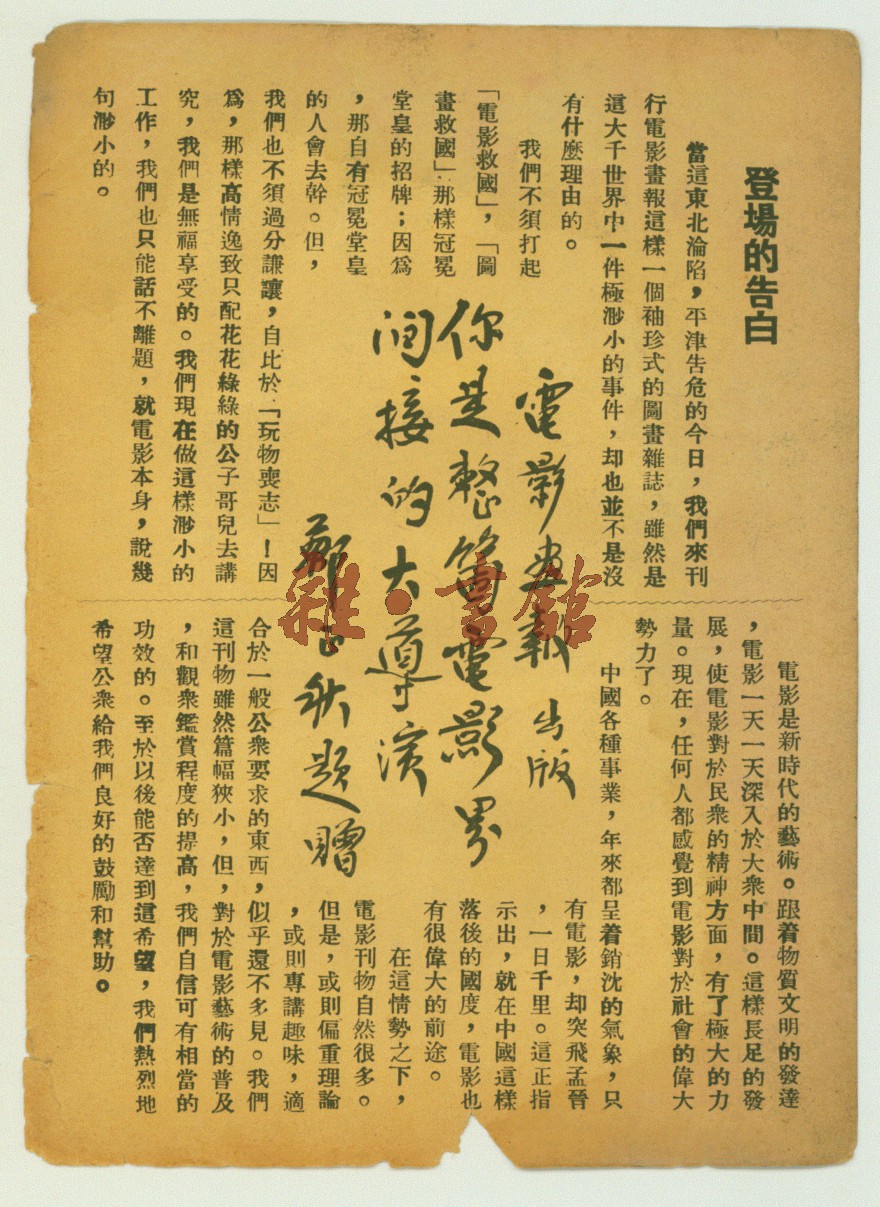 登場的告白
當這東北淪陷，平津吿危的今日，我們來刊
行電影畫報這樣一個袖珍式的圖畫雜誌，雖然是
這大千世界中一件極渺小的事件，却也並不是沒
有什麼理由的。
我們不須打起
「電影救國」，「圖
畫救國」那樣冠冕
堂皇的招牌；因爲
，那自有冠冕堂皇
的人會去幹。但，
我們也不須過分謙讓，自比於「玩物喪志」！因
爲，那樣高情逸致只配花花綠綠的公子哥兒去講
究，我們是無福享受的。我們現在做這樣渺小的
工作，我們也只能話不離題，就電影本身，說幾
句渺小的。
電影是新時代的藝術。跟着物質文明的發達
，電影一天一天深入於大衆中間。這樣長足的發
展，使電影對於民衆的精神方面，有了極大的力
量。現在，任何人都感覺到電影對於社會的偉大
勢力了。
中國各種事業，年來都呈着銷沈的氣象，只
有電影，却突飛孟晉
，一日千里。這正指
示出，就在中國這樣
落後的國度，電影也
有很偉大的前途。
在這情勢之下，
電影刊物自然很多。
但是，或則偏重理論
，或則專講趣味，適
合於一般公衆要求的東西，似乎還不多見。我們
這刊物雖然篇幅狹小，但，對於電影藝術的普及
，和觀衆鑑賞程度的提高，我們自信可有相當的
功效的。至於以後能否達到這希望，我們熱烈地
希望公衆給我們良好的鼓勵和幫助。
電影畫報出版
你是整個電影界
间接的大導演
鄭正秋題贈
雜·書館